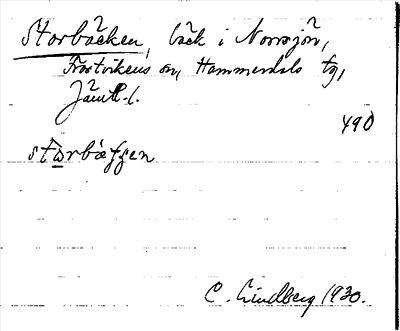 Storbäcken, bäck i Norrsjön,
Frostvikens sn, Hammerdals tg,
Jämtl.
490
C. Lindberg 1930.